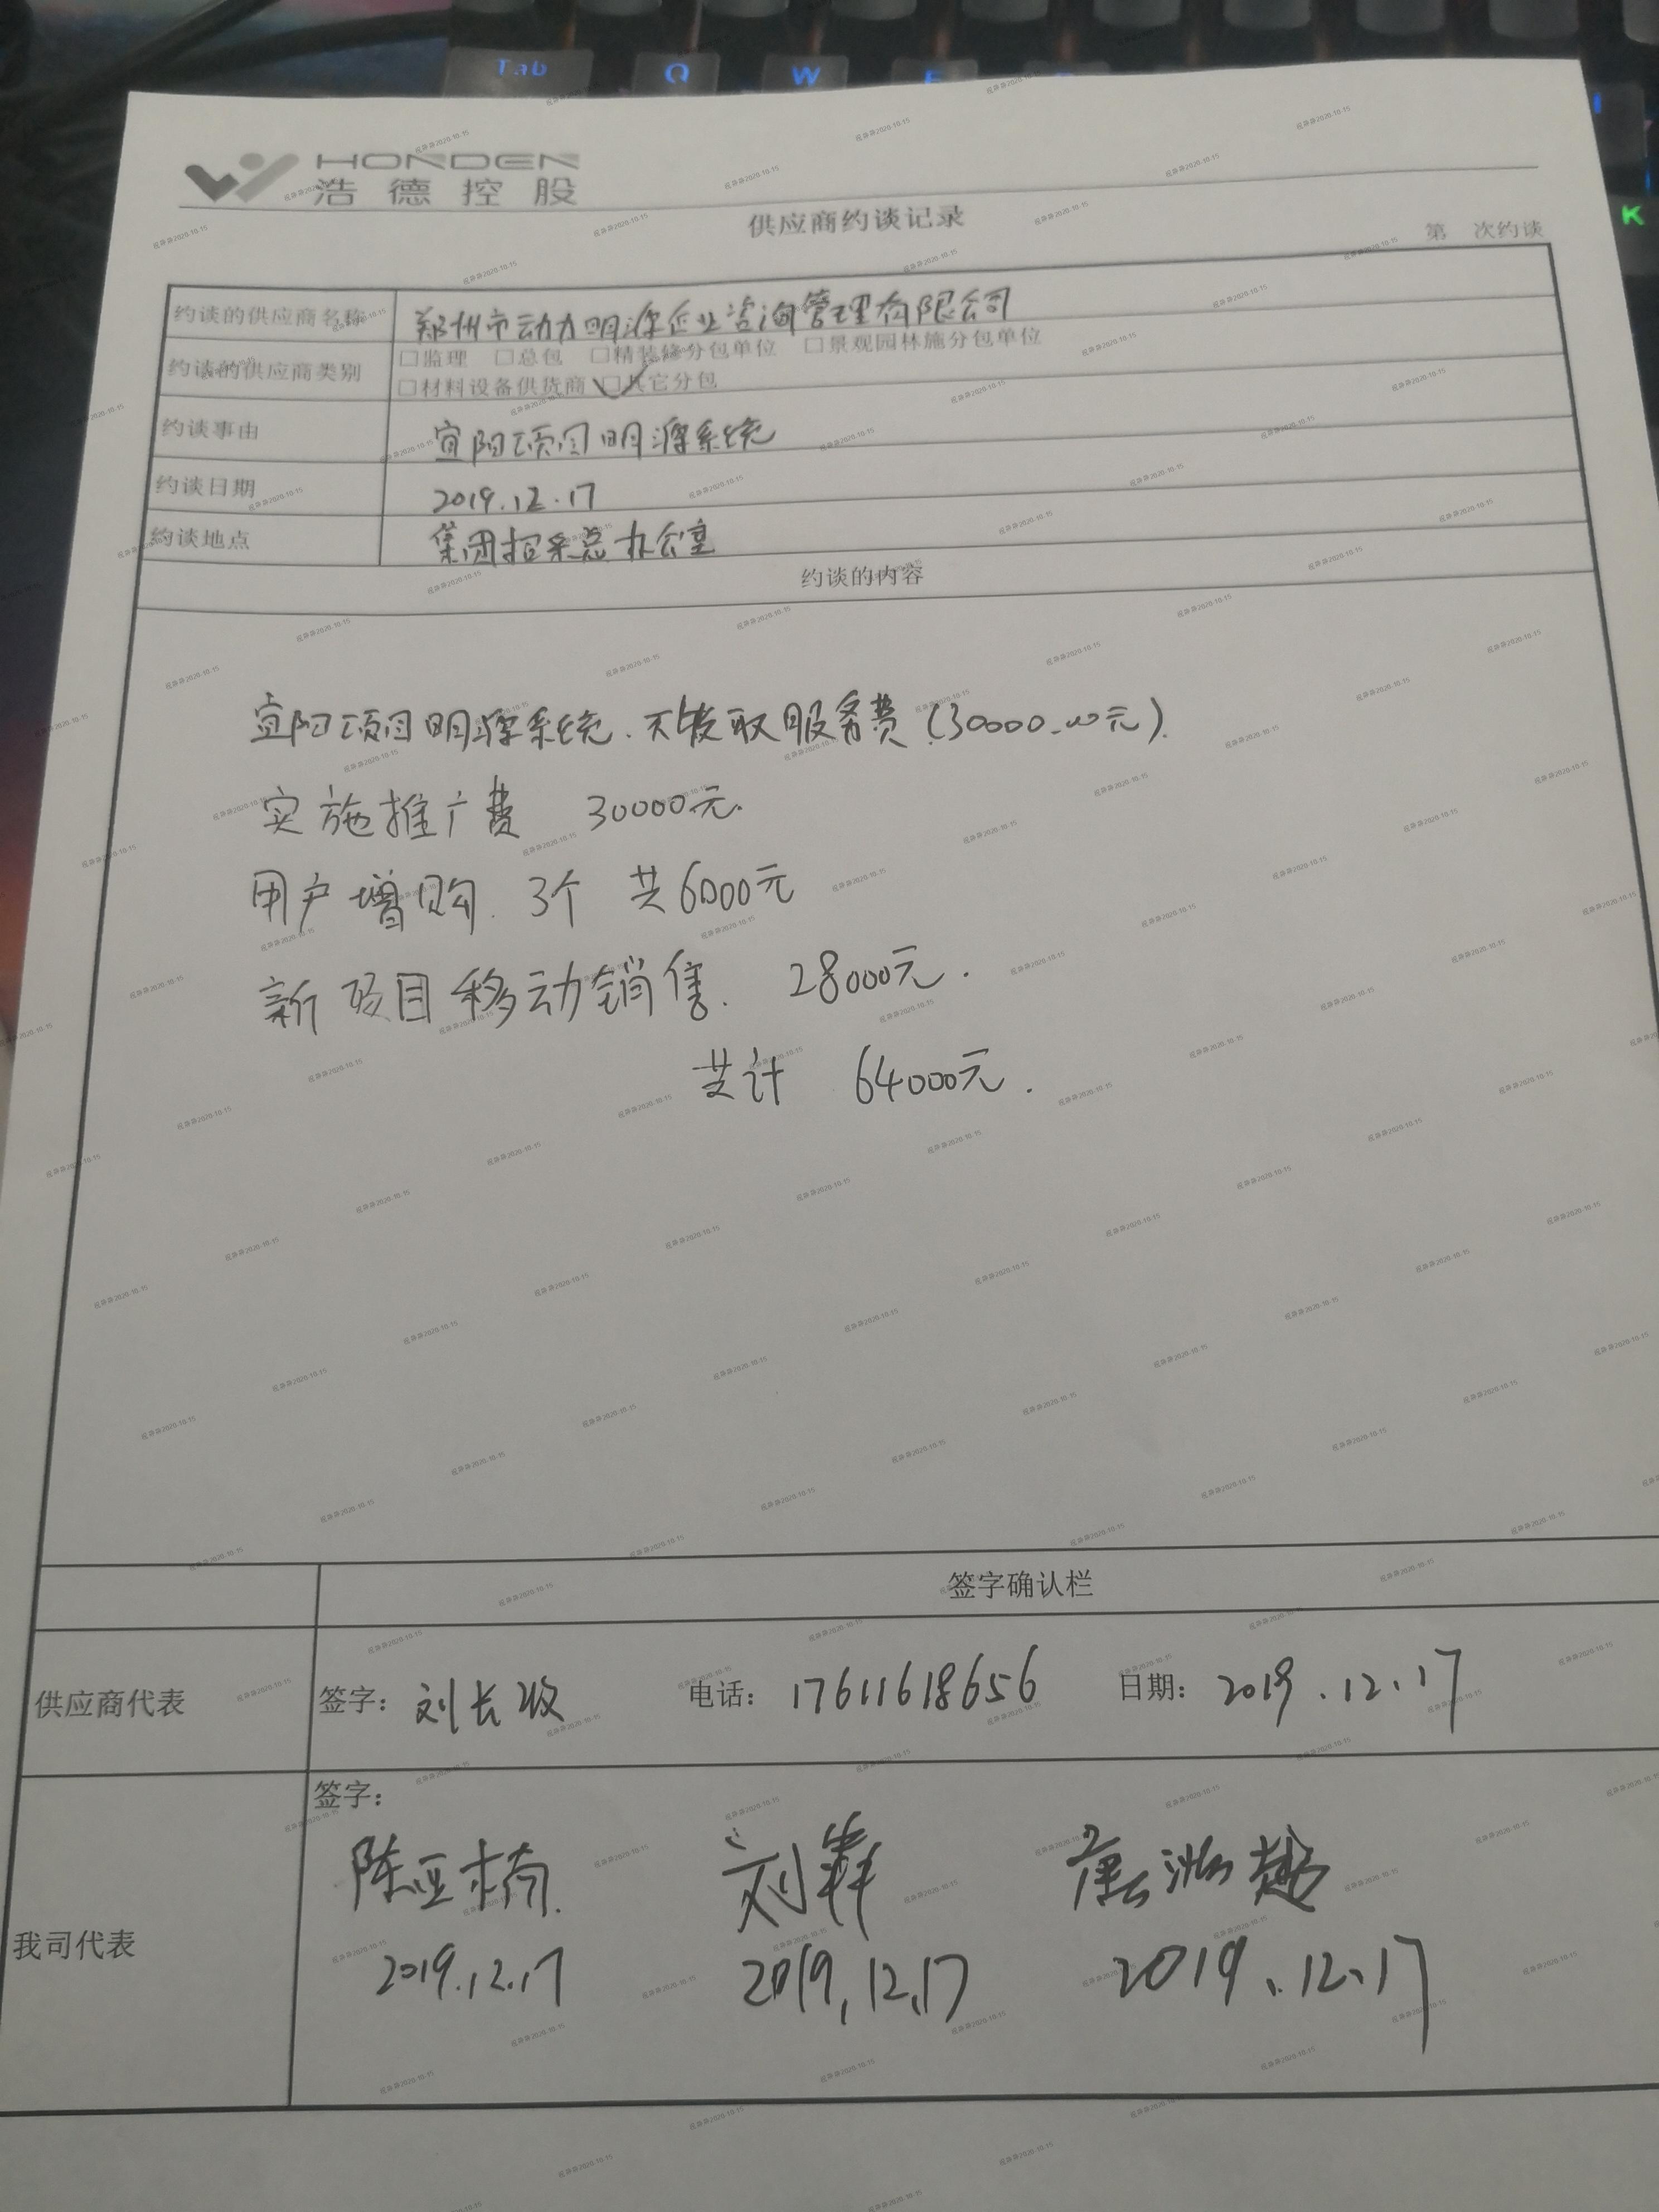 HONDEN
浩德控股
供应商约谈记录
第 次约谈
约谈的供应商名称 郑州市动力明源企业咨询管理有限公司
约谈的供应商类别 □监理 □总包 □精装修分包单位 □景观园林施分包单位
□材料设备供货商 ☑其它分包
约谈事由 宜阳项目明源系统
约谈日期 2019.12.17
约谈地点 集团招采总办公室
约谈的内容
宜阳项目明源系统.不收取服务费(30000.00元).
实施推广费 30000元.
用户增购. 3个 共6000元
新项目移动销售. 28000元.
共计 64000元.
签字确认栏
供应商代表 签字: 刘长 电话: 17611618656 日期: 2019.12.17
我司代表 签字:
陈亚楠
2019.12.17 2019.12.17 2019.12.17
Tab Q W E
I
K